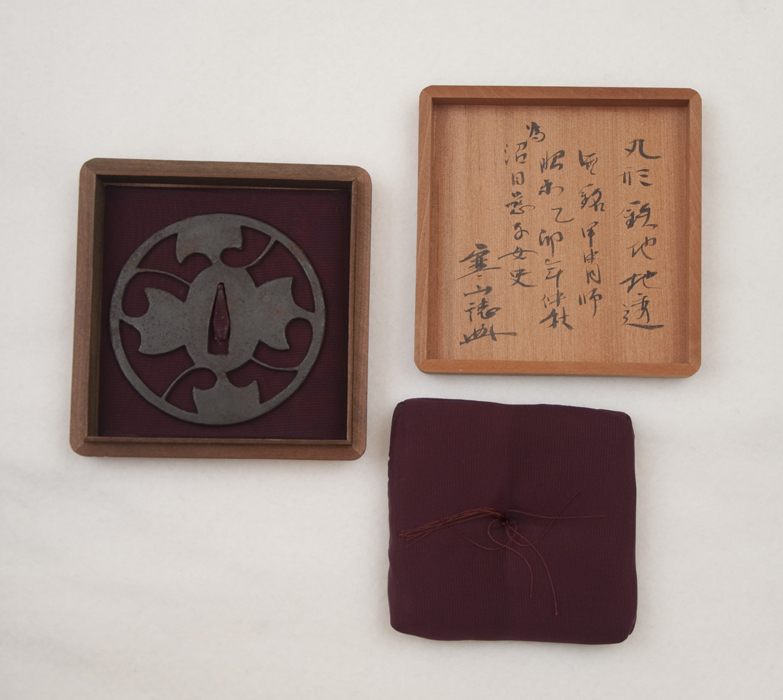 丸形鉄地地透
無銘 甲冑師
昭和乙卯年仲秋
為
沼田 子女史
寒山誌